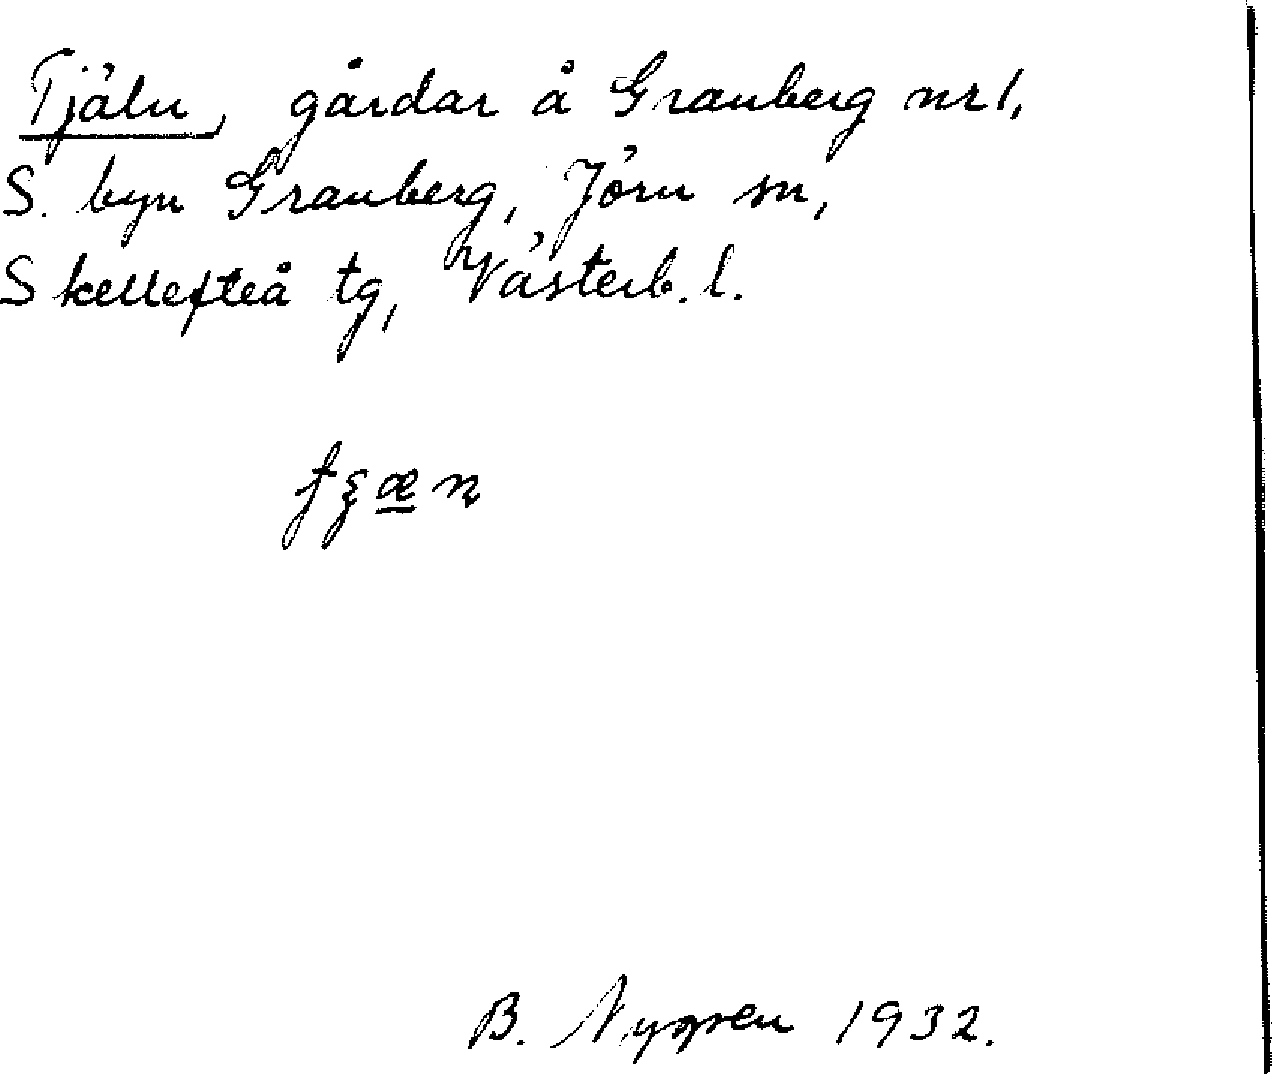 Tjäln, gårdar å Granberg nr 1,
S. byn Granberg, Jörn sn,
Skellefteå tg, Västerb. l.
B. Nygren 1932.